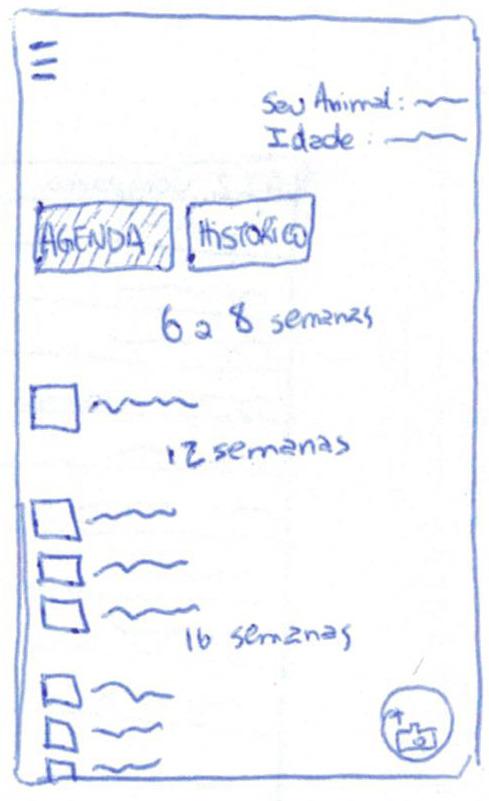 Seu Animal:
Idade:
AGENDA
HISTÓRICO
6 a 8 semanas
12 semanas
16 semanas